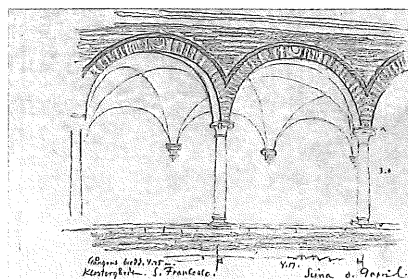 Gångens bredd. 4.75 m.
Klostergården. S. Francesco.
4.17.
3.0
Siena d. April